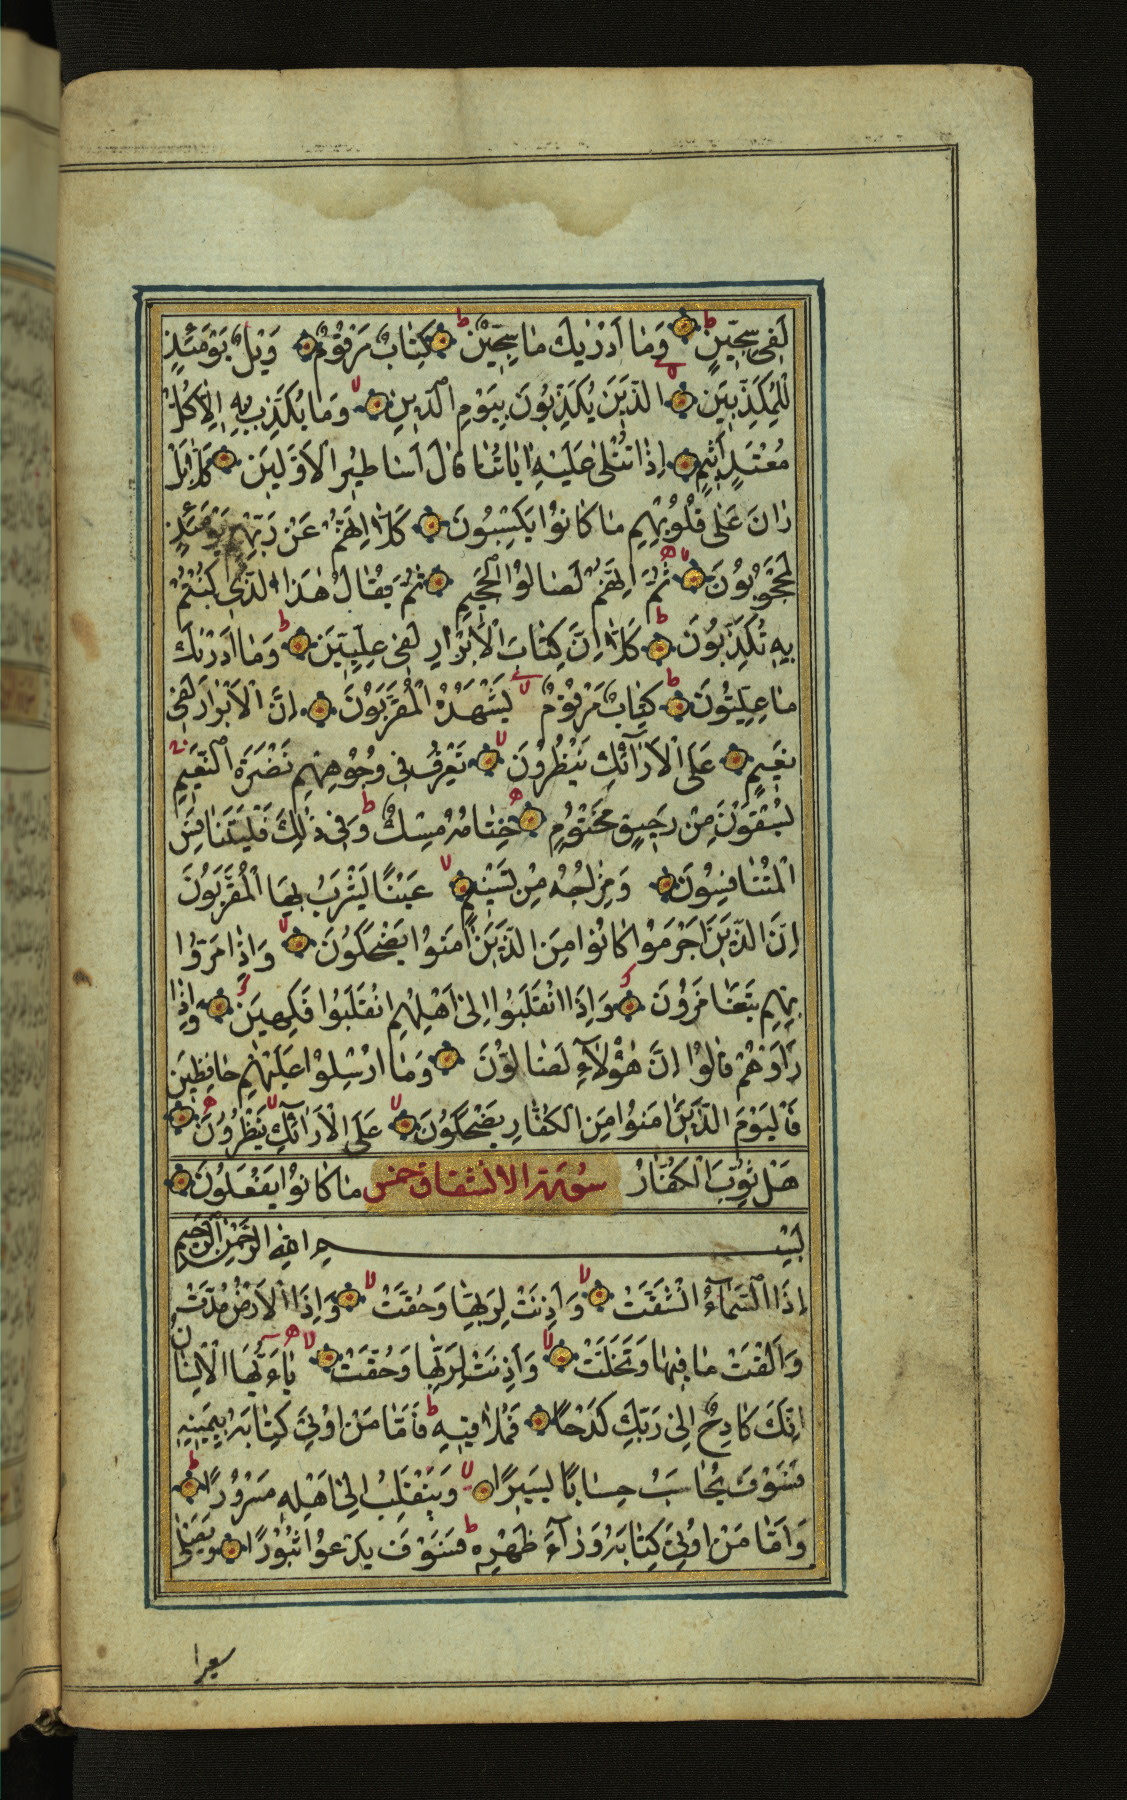 لَفِي سِجِّينٍ وَمَا اَدْرٰيكَ مَا سِجِّينٌ كِتَابٌ مَرْقُومٌ وَيْلٌ يَوْمَئِذٍ
لِلْمُكَذِّبِينَ الَّذِينَ يُكَذِّبُونَ بِيَوْمِ الدِّينِ وَمَا يُكَذِّبُ بِهِ اِلَّا كُلُّ
مُعْتَدٍ اَثِيمٍ اِذَا تُتْلٰى عَلَيْهِ اٰيَاتُنَا قَالَ اَسَاطِيرُ الْاَوَّلِينَ كَلَّا بَلْ
رَانَ عَلٰى قُلُوبِهِمْ مَا كَانُوا يَكْسِبُونَ كَلَّا اِنَّهُمْ عَنْ رَبِّهِمْ يَوْمَئِذٍ
لَمَحْجُوبُونَ ثُمَّ اِنَّهُمْ لَصَالُوا الْجَحِيمِ ثُمَّ يُقَالُ هٰذَا الَّذِي كُنْتُمْ
بِهِ تُكَذِّبُونَ كَلَّا اِنَّ كِتَابَ الْاَبْرَارِ لَفِي عِلِّيِّينَ وَمَا اَدْرٰيكَ
مَا عِلِّيُّونَ كِتَابٌ مَرْقُومٌ يَشْهَدُهُ الْمُقَرَّبُونَ اِنَّ الْاَبْرَارَ لَفِي
نَعِيمٍ عَلَى الْاَرَآئِكِ يَنْظُرُونَ تَعْرِفُ فِي وُجُوهِهِمْ نَضْرَةَ النَّعِيمِ
يُسْقَوْنَ مِنْ رَحِيقٍ مَخْتُومٍ خِتَامُهُ مِسْكٌ وَفِي ذٰلِكَ فَلْيَتَنَافَسِ
الْمُتَنَافِسُونَ وَمِزَاجُهُ مِنْ تَسْنِيمٍ عَيْنًا يَشْرَبُ بِهَا الْمُقَرَّبُونَ
اِنَّ الَّذِينَ اَجْرَمُوا كَانُوا مِنَ الَّذِينَ اٰمَنُوا يَضْحَكُونَ وَاِذَا مَرُّوا
بِهِمْ يَتَغَامَزُونَ وَاِذَا انْقَلَبُوا اِلٰى اَهْلِهِمُ انْقَلَبُوا فَكِهِينَ وَاِذَا
رَاَوْهُمْ قَالُوا اِنَّ هٰؤُلَآءِ لَضَالُّونَ وَمَا اُرْسِلُوا عَلَيْهِمْ حَافِظِينَ
فَالْيَوْمَ الَّذِينَ اٰمَنُوا مِنَ الْكُفَّارِ يَضْحَكُونَ عَلَى الْاَرَآئِكِ يَنْظُرُونَ
هَلْ ثُوِّبَ الْكُفَّارُ سورة الانشقاق خمس مَا كَانُوا يَفْعَلُونَ
بِسْمِ اللهِ الرَّحْمٰنِ الرَّحِيمِ
اِذَا السَّمَآءُ انْشَقَّتْ وَاَذِنَتْ لِرَبِّهَا وَحُقَّتْ وَاِذَا الْاَرْضُ مُدَّتْ
وَاَلْقَتْ مَا فِيهَا وَتَخَلَّتْ وَاَذِنَتْ لِرَبِّهَا وَحُقَّتْ يَآ اَيُّهَا الْاِنْسَانُ
اِنَّكَ كَادِحٌ اِلٰى رَبِّكَ كَدْحًا فَمُلَاقِيهِ فَاَمَّا مَنْ اُوتِيَ كِتَابَهُ بِيَمِينِهِ
فَسَوْفَ يُحَاسَبُ حِسَابًا يَسِيرًا وَيَنْقَلِبُ اِلٰى اَهْلِهِ مَسْرُورًا
وَاَمَّا مَنْ اُوتِيَ كِتَابَهُ وَرَآءَ ظَهْرِهِ فَسَوْفَ يَدْعُوا ثُبُورًا وَيَصْلٰى
سعيرا